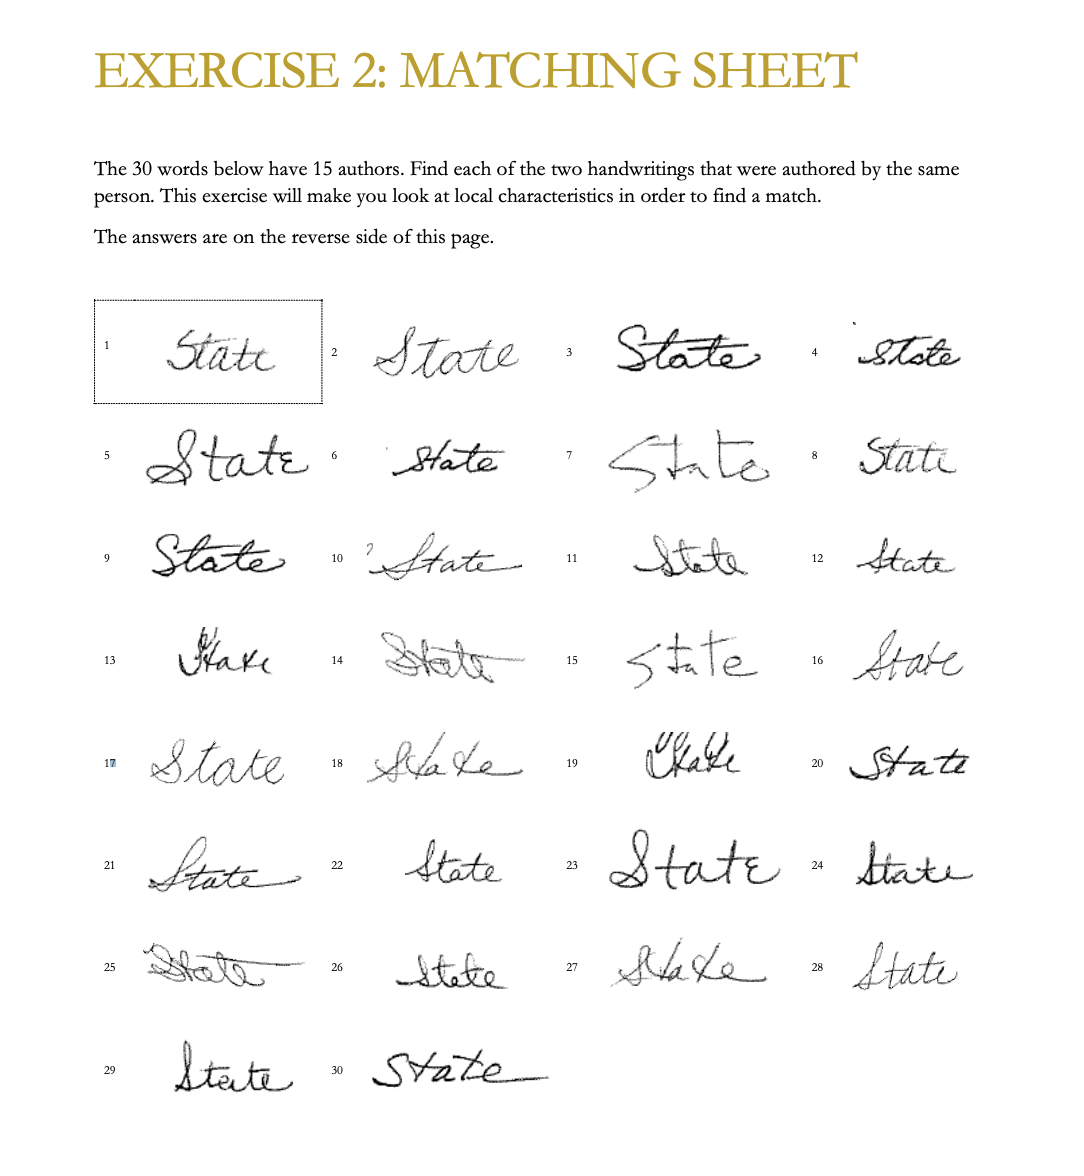 EXERCISE 2: MATCHING SHEET
The 30 words below have 15 authors. Find each of the two handwritings that were authored by the same
person. This exercise will make you look at local characteristics in order to find a match.
The answers are on the reverse side of this page.
1 State 2 State 3 State 4 State
5 State 6 State 7 State 8 State
9 State 10 ? State 11 State 12 State
13 State 14 State 15 State 16 State
17 State 18 State 19 State 20 State
21 State 22 State 23 State 24 State
25 State 26 State 27 State 28 State
29 State 30 State